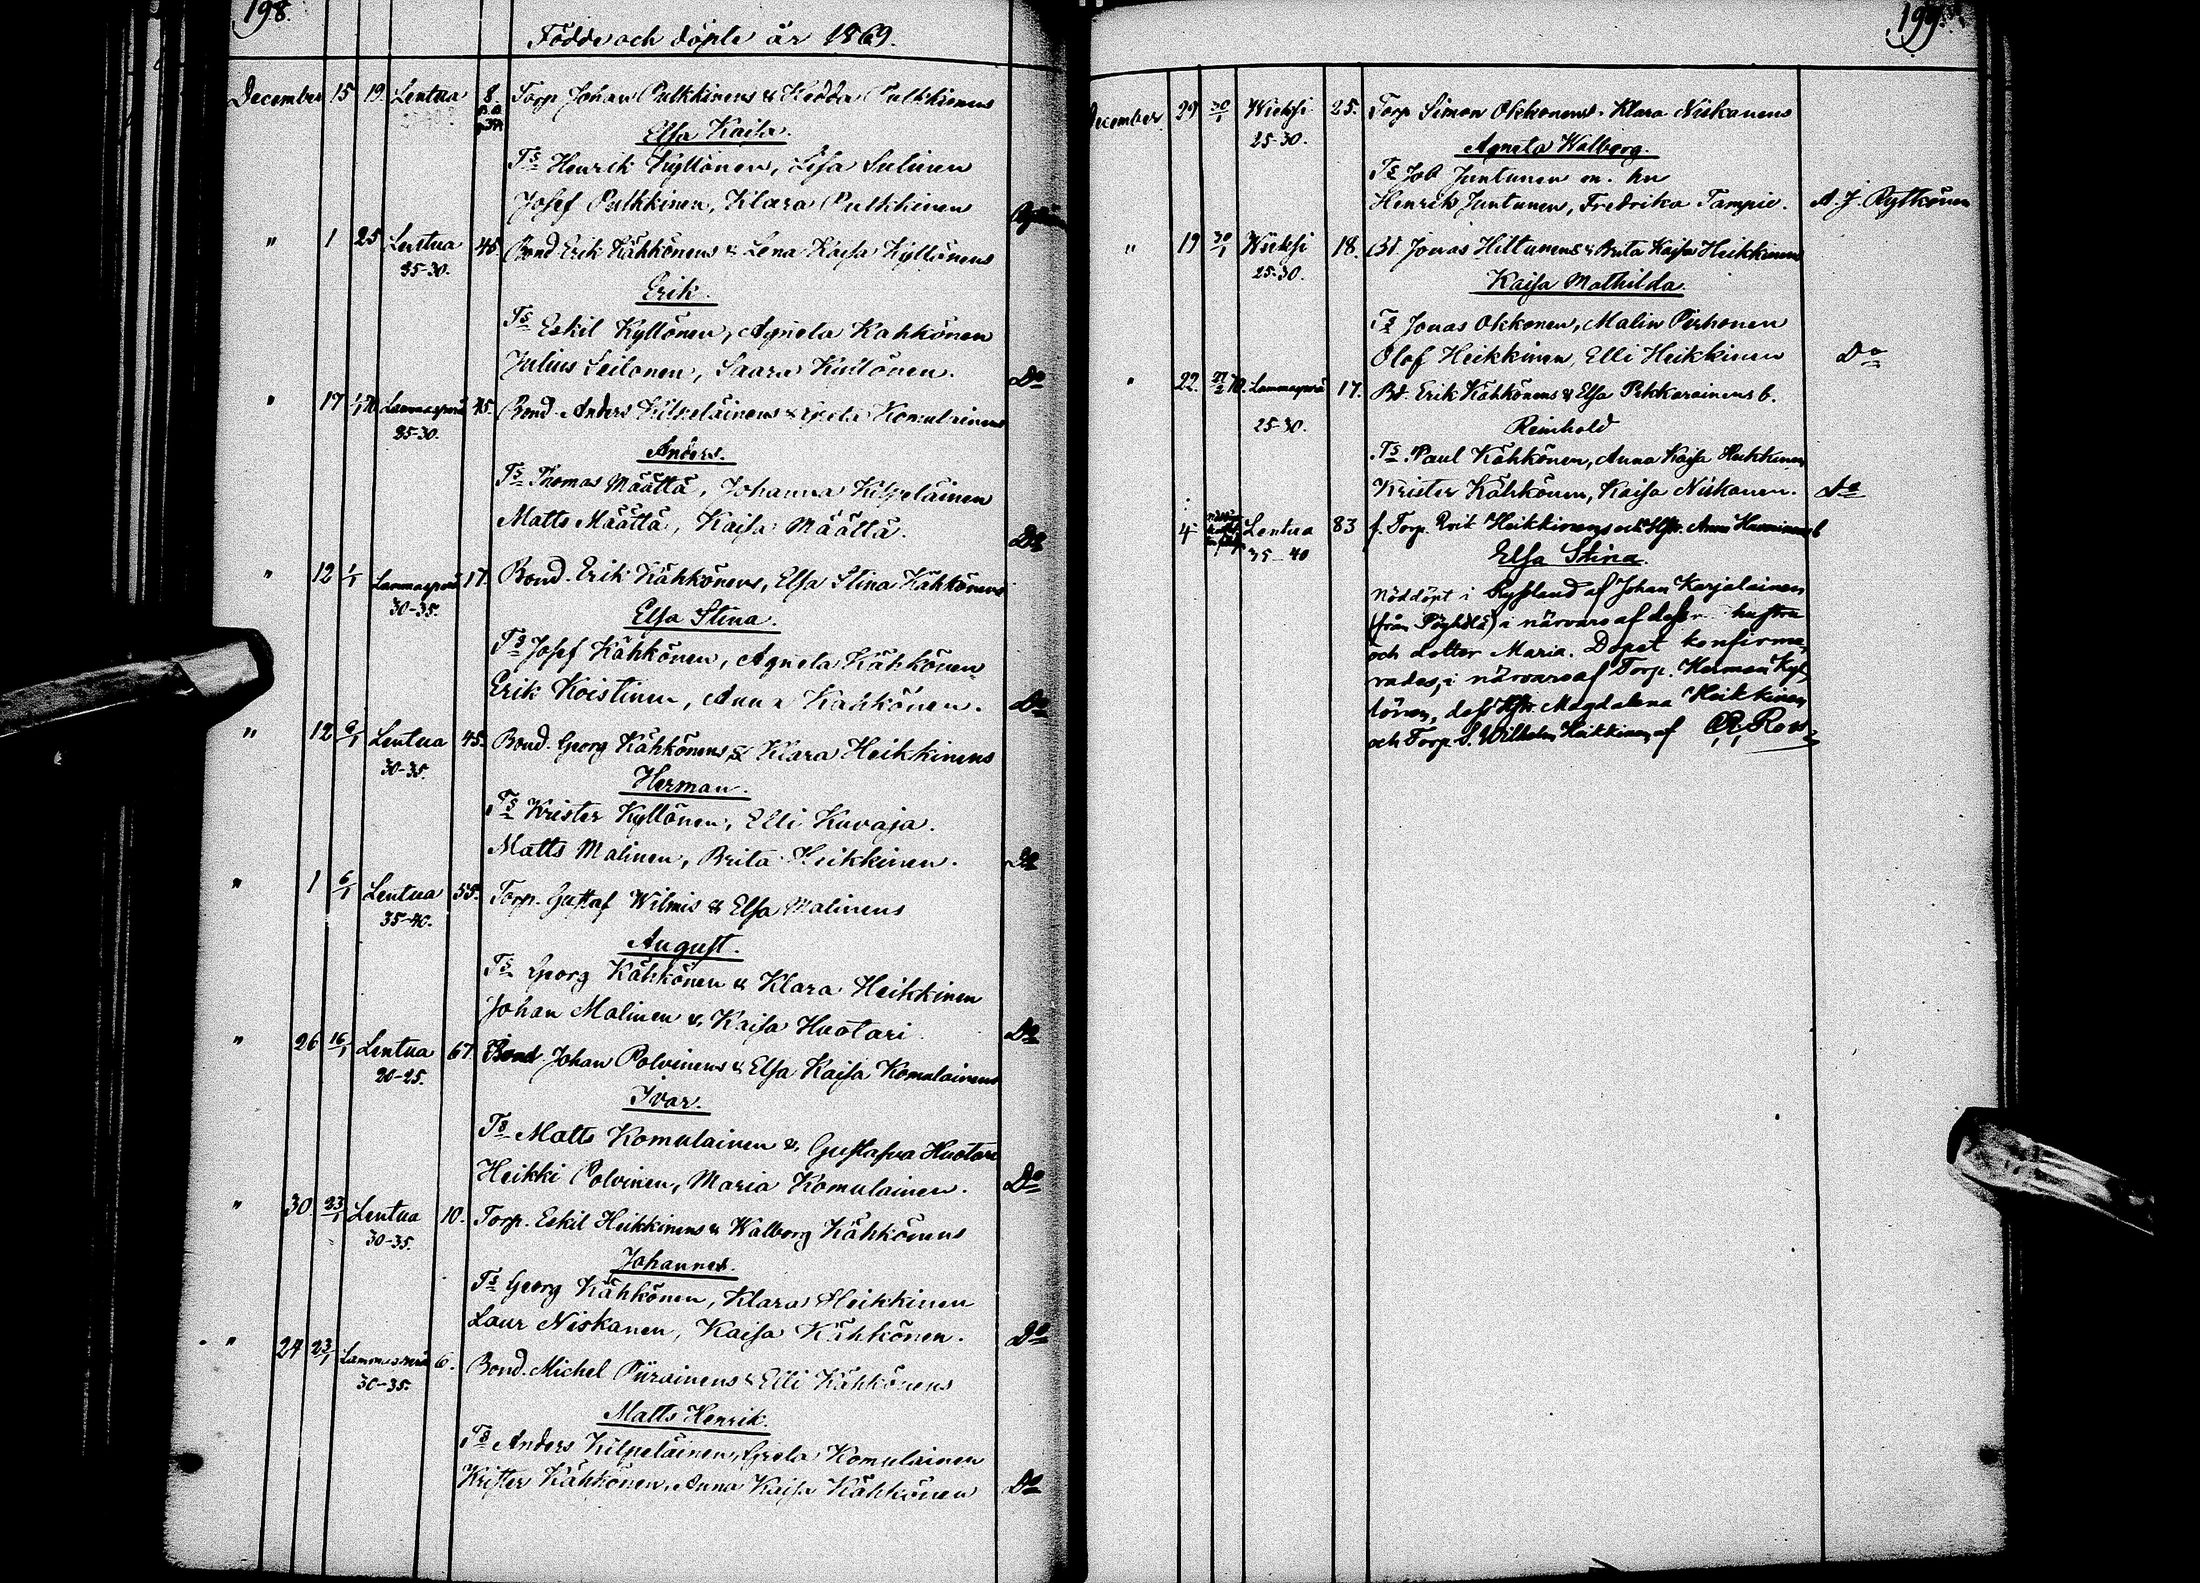 198.
Födde och döpte år 1869.
December 15 19 Lentua 8 Torp Johan Pulkkinens & Hedda Pulkkinens
Elsa Kaisa.
Ts Henrik Kyllönen, Lisa Sulinen
Josef Pulkkinen, Klara Pulkkinen
" 1 25 Lentua 45. Bond Erik Kähkönens & Lena Kaisa Kyllönens
25-30.
Erik.
Ts Eskil Kyllönen, Agneta Kahkönen
Julius Seilonen, Saara Kyllönen. Do
" 17 1/1 70 Lammasperä 45. Bond. Anders Kilpeläinens & Greta Komulainens
25-30.
Anders.
Ts Thomas Määttä, Johanna Kilpeläinen
Matts Määttä, Kaisa Määttä. Do
" 12 1/1 Lammasperä 17. Bond. Erik Kähkönens, Elsa Stina Kähkönens
30-35.
Elsa Stina.
Ts Josef Kähkönen, Agneta Kähkönen
Erik Koistinen, Anna Kahkönen. Do
" 12 6/1 Lentua 45. Bond. Georg Kähkönens & Klara Heikkinens
30-35.
Herman.
Ts Krister Kyllönen, Elli Kuvaja.
Matts Malinen, Brita Heikkinen. Do
" 1 6/1 Lentua 55. Torp. Gustaf Wilmis & Elsa Malinens
35-40.
August.
Ts Georg Kähkönen & Klara Heikkinen
Johan Malinen & Kaisa Huotari. Do
" 26 16/1 Lentua 67. Bond. Johan Polvinens & Elsa Kaisa Komulainens
20-25.
Ivar.
Ts Matts Komulainen & Gustafva Huotari
Heikki Polvinen, Maria Komulainen. Do
" 30 23/1 Lentua 10. Torp. Eskil Heikkinens & Walborg Kähkönens
30-35.
Johannes.
Ts Georg Kähkönen, Klara Heikkinen
Laur Niskanen, Kaisa Kähkönen. Do
" 24 23/1 Lammasperä 6. Bond. Michel Piirainens & Elli Kähkönens
30-35.
Matts Henrik.
Ts Anders Kilpeläinen, Greta Komulainen
Krister Kähkönen, Anna Kaisa Kähkönen Do
199.
December 29 30/1 Wieksi 25. Torp Simon Okkonens, Klara Niskanens
25-30.
Agneta Walborg.
Ts Job Juntunen m. hu
Henrik Juntunen, Fredrika Tampio. A. J. Rytkönen
" 19 30/1 Wieksi 18. Bd. Jonas Hiltunens & Brita Kaisa Heikkinens
25-30.
Kaisa Mathilda.
Ts Jonas Okkonen, Malin Pirhonen
Olof Heikkinen, Elli Heikkinen Do
" 22. 27/2 70. Lammasperä 17. Bd. Erik Kähkönens & Elsa Pekkarainens b.
25-30.
Reinhold
Ts Paul Kähkönen, Anna Kaisa Heikkinen
Krister Kähkönen, Kaisa Niskanen. Do
4 Lentua 83 f. Torp. Heikkinens och Hstr. Anna b
35-40
Elsa Stina.
Nöddöpt i Ryssland af Johan Karjalainen
(från) i närvaro af dess hustru
och dotter Maria. Dopet konfirme-
rades, i närvaro af Torp. Herman Kyl-
lönen, dess Hstr. Magdalena Heikkinen
och Torp. S. Wilhelm Heikkinen af R. Ross